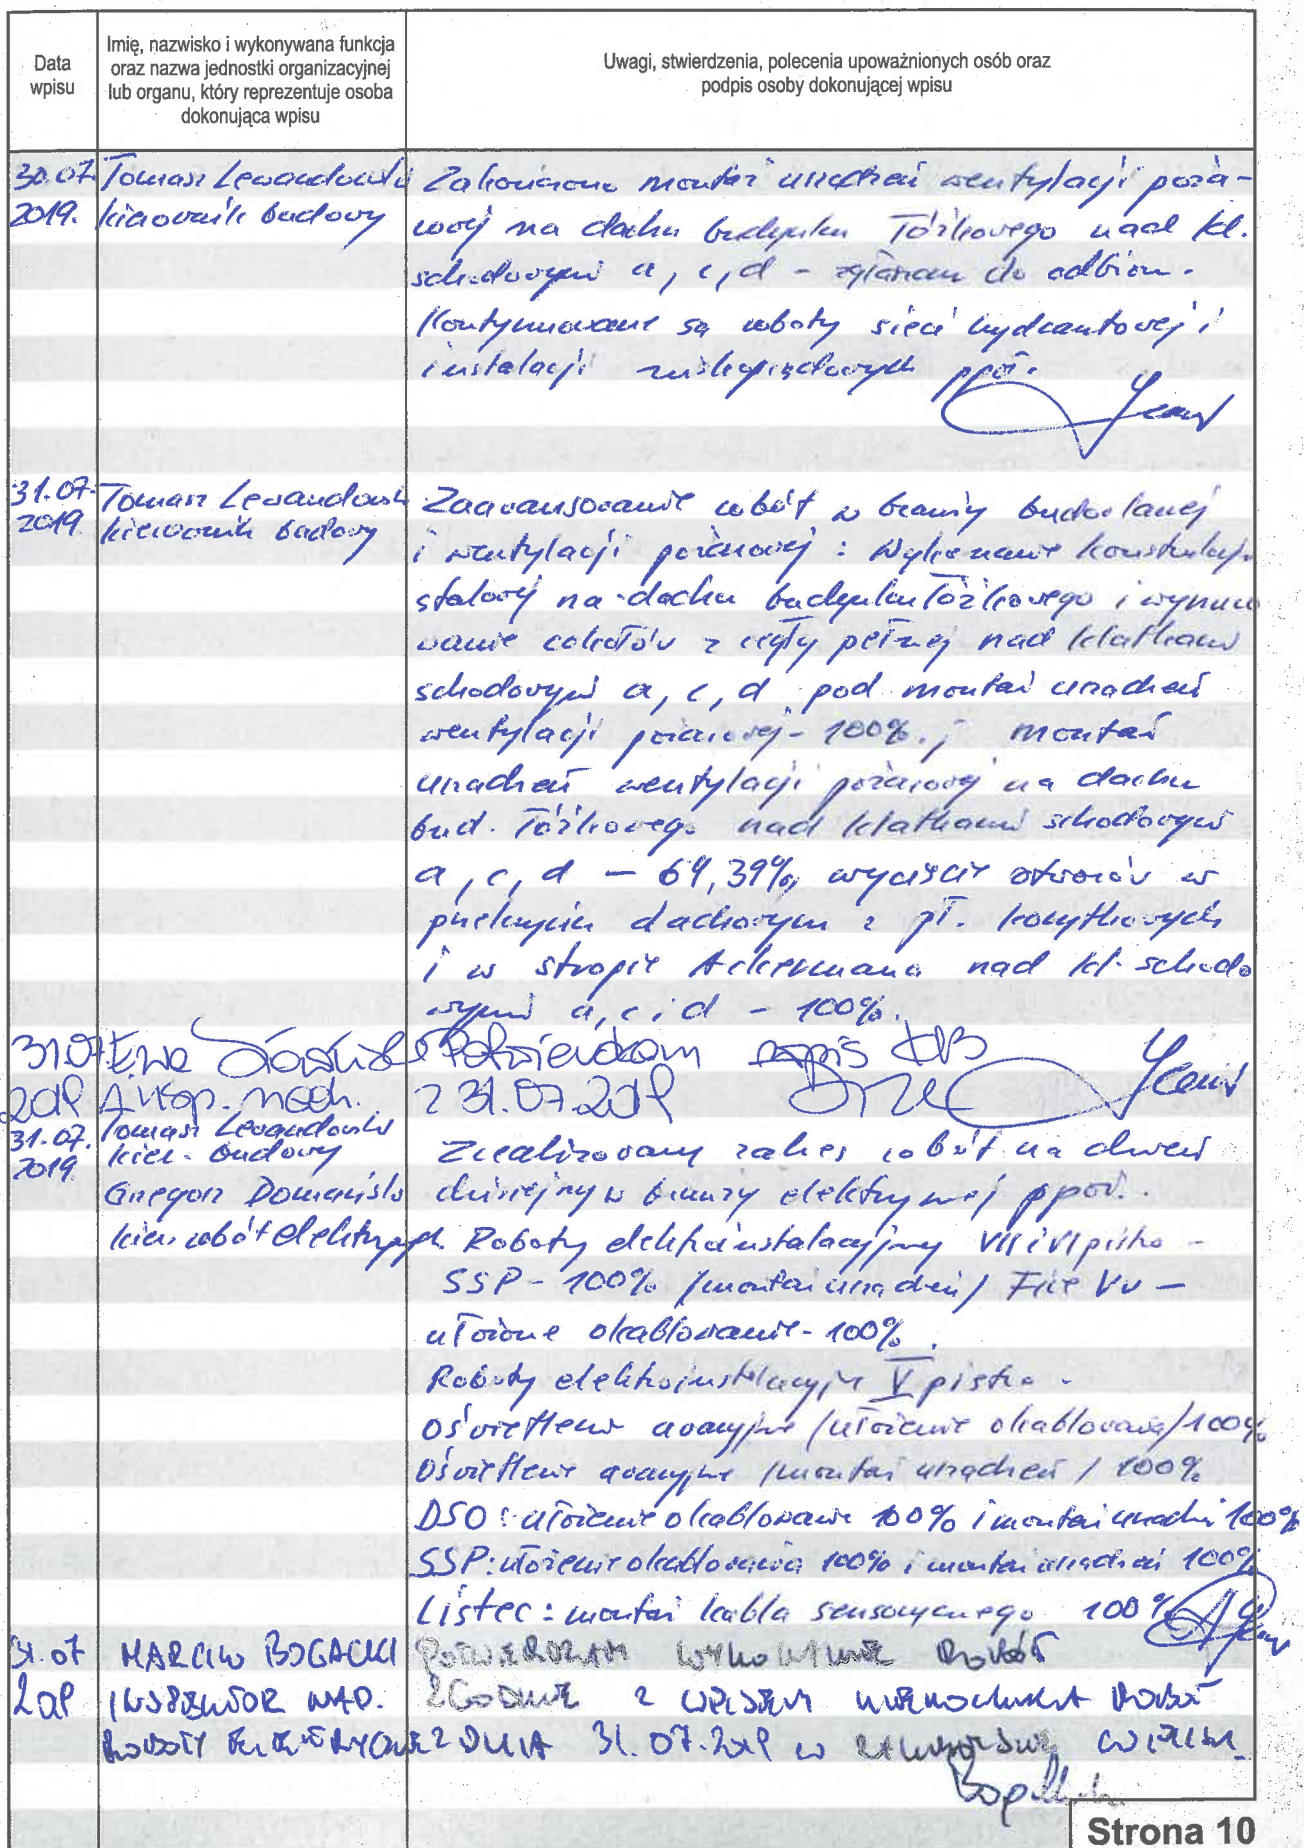 Data
wpisu
Imię, nazwisko i wykonywana funkcja
oraz nazwa jednostki organizacyjnej
lub organu, który reprezentuje osoba
dokonująca wpisu
Uwagi, stwierdzenia, polecenia upoważnionych osób oraz
podpis osoby dokonującej wpisu
30.07.
2019.
Tomasz Lewandowski
kierownik budowy
Zakończono montaż urządzeń wentylacji poża-
rowej na dachu budynku Łóżkowego nad kl.
schodowymi a, c, d - zgłaszam do odbioru.
Kontynuowane są roboty sieci hydrantowej i
instalacji niskoprądowych ppoż.
31.07.
2019
Tomasz Lewandowski
kierownik budowy
Zaawansowanie robót w branży budowlanej
i wentylacji pożarowej : Wykonanie konstrukcji
stalowej na dachu budynku Łóżkowego i wymuro
wanie cokołów z cegły pełnej nad klatkami
schodowymi a, c, d pod montaż urządzeń
wentylacji pożarowej - 100%., montaż
urządzeń wentylacji pożarowej na dachu
bud. Łóżkowego nad klatkami schodowymi
a, c, d - 64,39%, wycięcie otworów w
pokryciu dachowym z pł. korytkowych
i w stropie Ackermana nad kl. schodo
wymi a, c i d - 100%.
31.07
2019
Ewa
insp. nadz.
Potwierdzam wpis KB
z 31.07.2019
31.07.
2019
Tomasz Lewandowski
kier. budowy
Grzegorz Domański
kier. robót elektrycznych
Zrealizowany zakres robót na dzień
dzisiejszy w branży elektrycznej ppoż.
Roboty elektroinstalacyjny VII i VI piętro -
SSP - 100% /montaż urządzeń/ Fire Vu -
ułożone okablowanie - 100%.
Roboty elektroinstalacyjne V piętro -
Oświetlenie awaryjne /ułożenie okablowania/ 100%
Oświetlenie awaryjne /montaż urządzeń / 100%
DSO : ułożenie okablowanie 100% i montaż urządzeń 100%
SSP: ułożenie okablowania 100% i montaż urządzeń 100%
Listec : montaż kabla sensorycznego 100%
31.07
2019
MARCIN BOGACKI
INSPEKTOR NAD.
ROBOTY ELEKTRYCZNE
POTWIERDZAM WYKONANIE ROBÓT
ZGODNIE Z WPISEM KIEROWNIKA ROBÓT
Z DNIA 31.07.2019 w
Strona 10